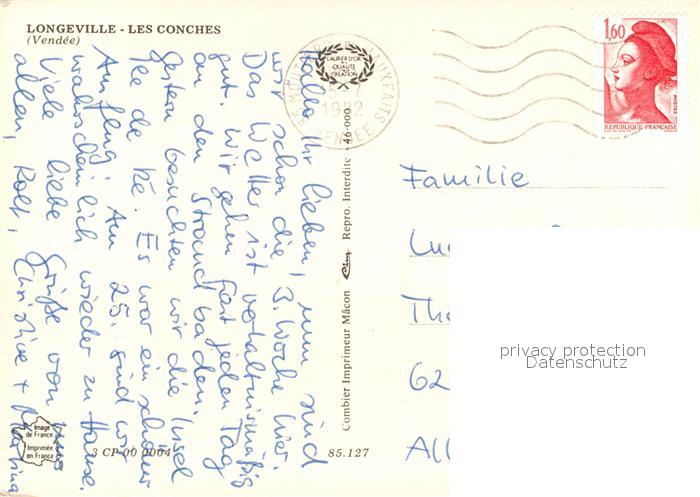 LONGEVILLE - LES CONCHES
(Vendée)
Hallo Ihr lieben, nun sind
wir schon die 3. Woche hier.
Das Wetter ist verhältnismäßig
gut. Wir gehen fast jeden Tag
an den Strand baden.
Gestern besuchten wir die Insel
Ile de Ré. Es war ein schöner
Ausflug. Am 25. sind wir
wahrscheinlich wieder zu Hause.
Viele liebe Grüße von uns
allen, Rolf, Christine + Martina
Image
de France
Imprimée
en France
3 CP 00 0004
85.127
Combier Imprimeur Mâcon Cim Repro. Interdite - 46-000
LAURIER D'OR
DE LA
QUALITÉ
DE
CRÉATION
1982
VENDÉE
1,60
POSTES
REPUBLIQUE FRANÇAISE
Familie
Lu
Th
62
All
privacy protection
Datenschutz